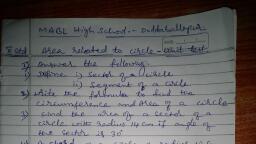 MABL High School - Dubbahallypur
X Std Area related to circle - Unit test
1) Answer the following.
i) Define i) Sector of a circle
ii) Segment of a circle
2) Write the formula to find the
circumference and area of a circle
3) Find the area of a sector of a
circle with radius 14 cm if angle of
the sector is 30°
A chord